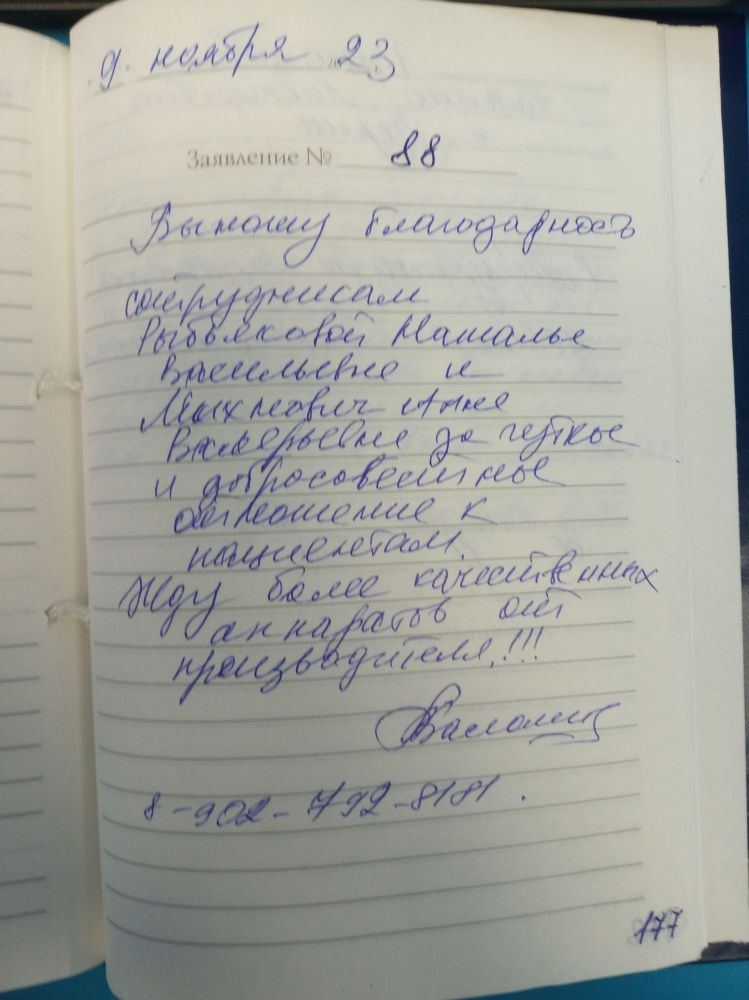 9. ноября 23
Заявление № 88
Выношу благодарность
сотрудникам
Наталье
Васильевне и
Анне
Валерьевне за четкое
и добросовестное
отношение к
пациентам.
Жду более качественных
аппаратов от
производителя!!!
8-902-792-8181.
177